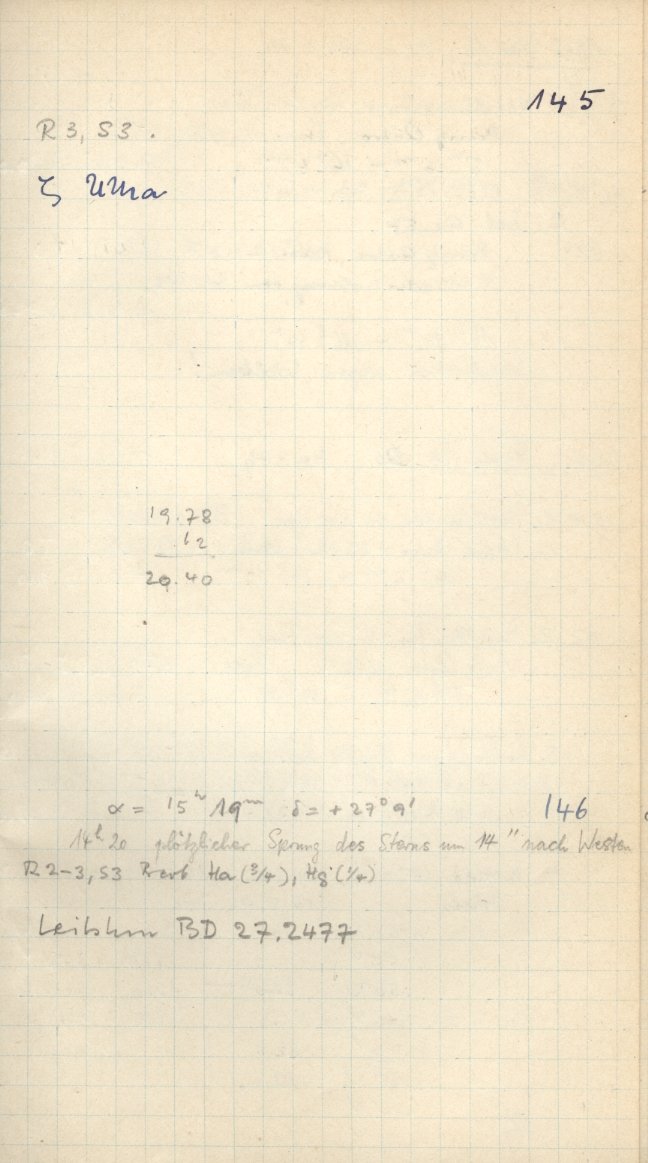 145
R 3, S 3 .
ζ UMa
19.78
.62
20.40
α = 15ʰ 19ᵐ δ = + 27° 9' 146
14ʰ 20 plötzlicher Sprung des Sterns um 14" nach Westen
R 2-3, S3 Beob Ha (3/4), Hg (1/4)
Leitstern BD 27.2477